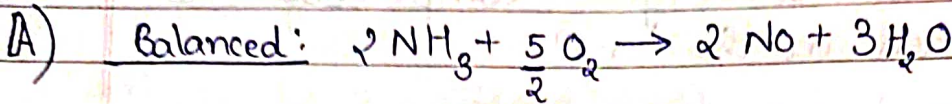 A) Balanced: 2 NH₃ + 5/2 O₂ → 2 No + 3 H₂O